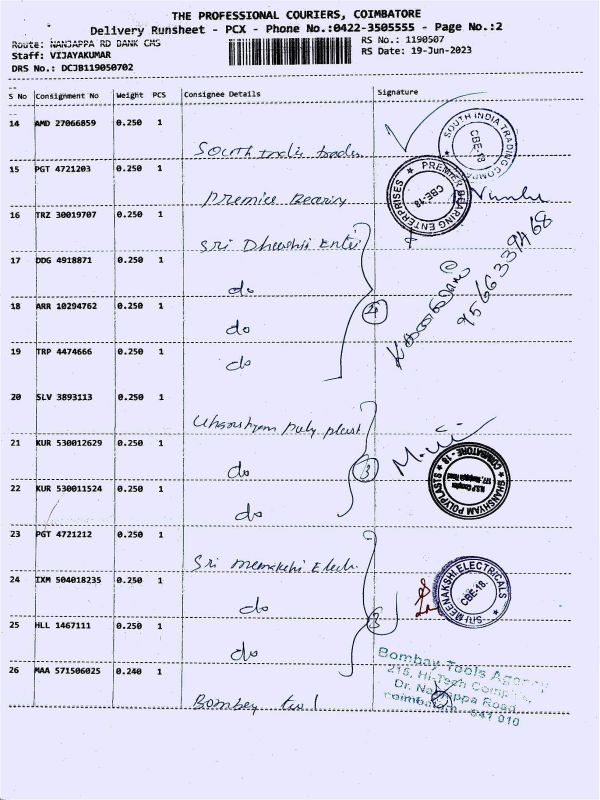 THE PROFESSIONAL COURIERS, COIMBATORE
Delivery Runsheet - PCX - Phone No.:0422-3505555 - Page No.:2
Route: NANJAPPA RD DANK CMS
RS No.: 1190507
Staff: VIJAYAKUMAR
RS Date: 19-Jun-2023
DRS No.: DCJB119050702
S No Consignment No Weight PCS Consignee Details Signature
14 AMD 27066859 0.250 1
South India trader
SOUTH INDIA TRADING COMPANY
CBE-18
15 PGT 4721203 0.250 1
Premier Bearing
PREMIER BEARING ENTERPRISES
CBE-18
16 TRZ 30019707 0.250 1
Sri Enter
17 DDG 4918871 0.250 1
do
18 ARR 10294762 0.250 1
do
4
9566339468
19 TRP 4474666 0.250 1
do
20 SLV 3893113 0.250 1
poly plast
21 KUR 530012629 0.250 1
do
3
GHANSHYAM POLYPLASTS
COIMBATORE - 18
22 KUR 530011524 0.250 1
do
23 PGT 4721212 0.250 1
Sri Elect
24 IXM 504018235 0.250 1
do
SRI MEENAKSHI ELECTRICALS
CBE-18.
25 HLL 1467111 0.250 1
do
3
26 MAA 571506025 0.240 1
Bombay tool
Bombay Tools Agency
215, Hi-Tech Complex,
Dr. Nanjappa Road,
Coimbatore - 641 010